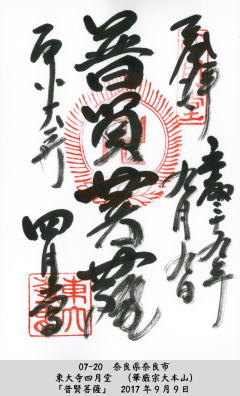 奉拝
平成二十九年
九月九日
普賢菩薩
四月堂
07-20　奈良県奈良市
東大寺四月堂　（華厳宗大本山）
「普賢菩薩」　2017年9月9日